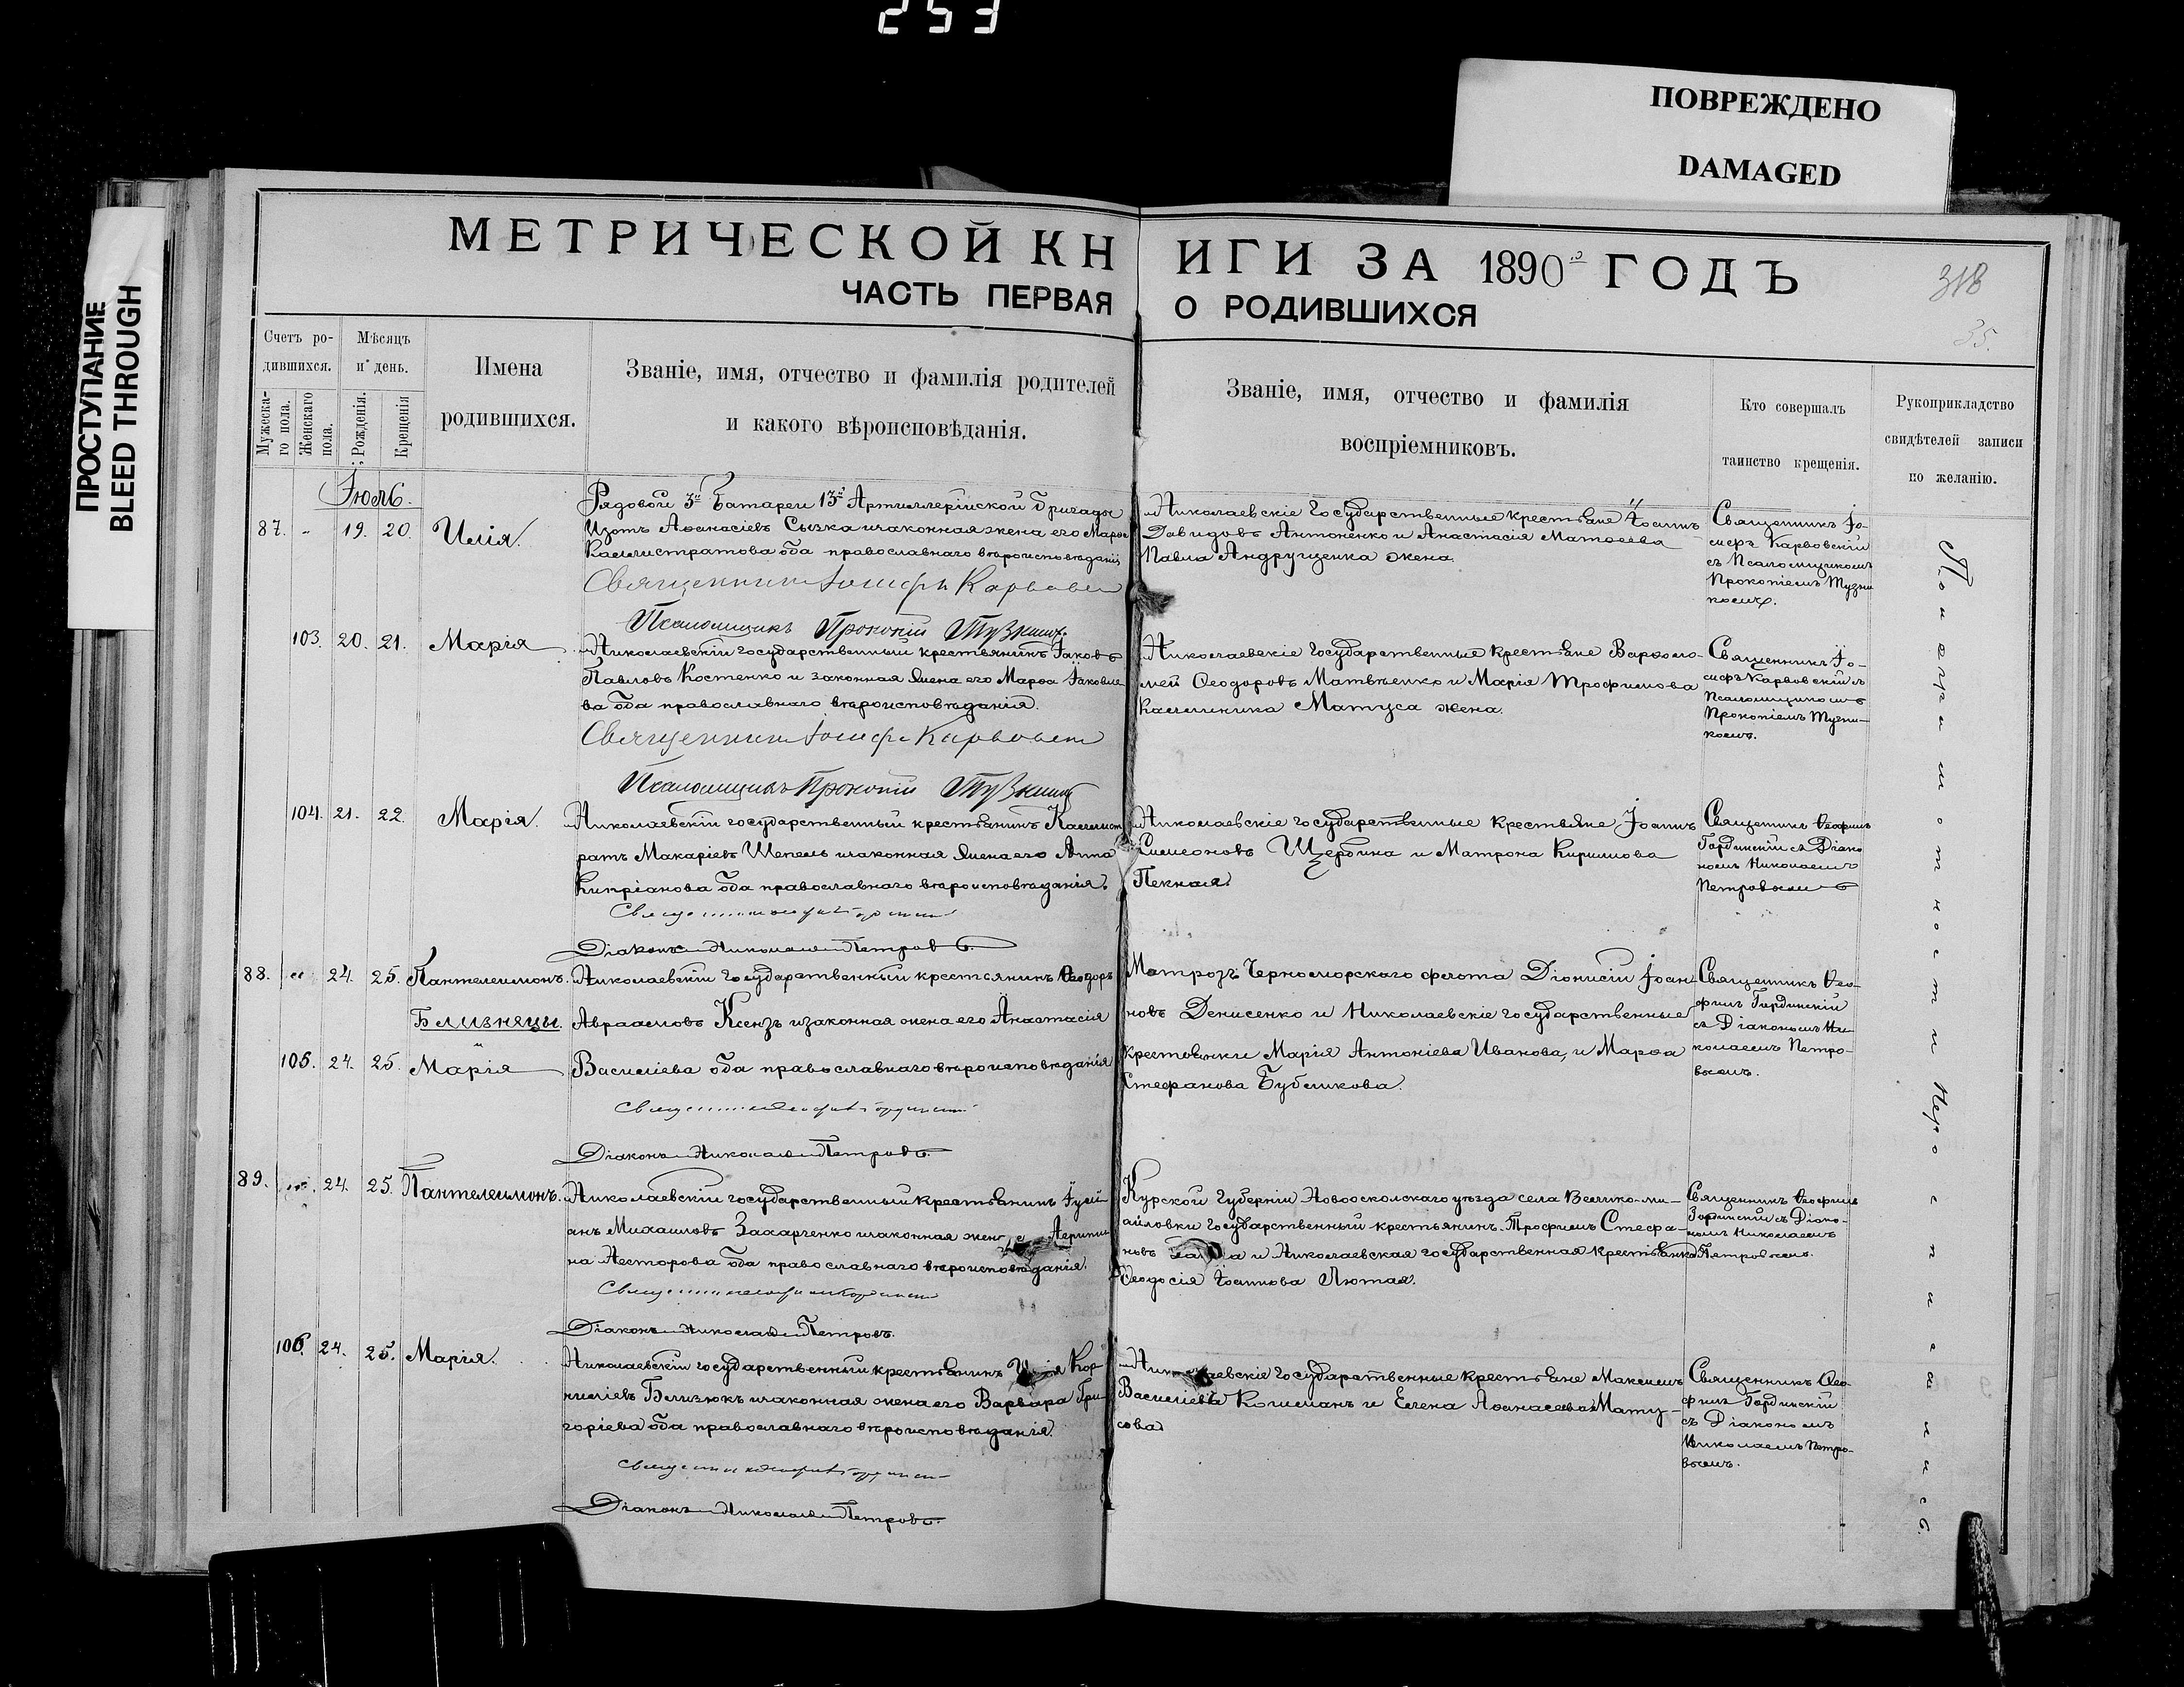 253
ПОВРЕЖДЕНО
DAMAGED
ПРОСТУПАНИЕ
BLEED THROUGH
МЕТРИЧЕСКОЙ КНИГИ ЗА 1890й ГОДЪ
ЧАСТЬ ПЕРВАЯ О РОДИВШИХСЯ
318
35.
Счетъ родившихся.
Мужеска-го пола.
Женскаго пола.
Мѣсяцъ и день.
Рожденія.
Крещенія
Имена родившихся.
Званіе, имя, отчество и фамилія родителей
и какого вѣроисповѣданія.
Званіе, имя, отчество и фамилія
воспріемниковъ.
Кто совершалъ
таинство крещенія.
Рукоприкладство
свидѣтелей записи
по желанію.
Іюль.
87. - 19. 20. Илія.
Рядовой 3й Батареи 13й Артиллерійской бригады
Изотъ Аѳанасіевъ Сычка и законная жена его Марѳа
Каллистратова оба православнаго вѣроисповѣданія
Священникъ Іосифъ Карвовскій
Псаломщикъ Прокопій Тузниковъ
Николаевскіе Государственные крестьяне Іоаннъ
Давидовъ Антоненко и Анастасія Матѳеева
Павла Андрущенка жена.
Священникъ Іо-
сифъ Карвовскій
съ Псаломщикомъ
Прокопіемъ Тузни
ковымъ.
103. 20. 21. Марія
Николаевскій государственный крестьянинъ Іаковъ
Павловъ Костенко и законная жена его Марѳа Іаковле-
ва оба православнаго вѣроисповѣданія.
Священникъ Іосифъ Карвовскій
Псаломщикъ Прокопій Тузниковъ
Николаевскіе Государственные крестьяне Варѳоло-
мей Ѳеодоровъ Матвѣенко и Марія Трофимова
Каллиника Матуса жена.
Священникъ Іо-
сифъ Карвовскій съ
Псаломщикомъ
Прокопіемъ Тузни-
ковымъ.
104. 21. 22. Марія.
Николаевскій государственный крестьянинъ
ратъ Макаріевъ Шепель и законная жена его Анна
Кипріанова оба православнаго вѣроисповѣданія.
Священникъ Ѳеофилъ Гординскій
Діаконъ Николай Петровъ.
Николаевскіе государственные крестьяне Іоаннъ
Симеоновъ Щербина и Матрона Кириллова
Пекная.
Священникъ Ѳеофилъ
Гординскій съ Діако
номъ Николаемъ
Петровымъ
88. „ 24. 25. Пантелеимонъ.
Близнецы.
105. 24. 25. Марія
Николаевскій Государственный крестьянинъ Ѳеодоръ
Авраамовъ Ксензъ и законная жена его Анастасія
Василіева оба православнаго вѣроисповѣданія
Священникъ Ѳеофилъ Гординскій
Діаконъ Николай Петровъ.
Матрозъ Черноморскаго флота Діонисій Іоан-
новъ Денисенко и Николаевскіе государственные
крестьянки Марія Антоніева Иванова, и Марѳа
Стефанова Бубликова.
Священникъ Ѳео-
филъ Гординскій
съ Діакономъ Ни-
колаемъ Петро-
вымъ.
89. „ 24. 25. Пантелеимонъ.
Николаевскій государственный крестьянинъ Іулі-
анъ Михаиловъ Захарченко и законная жена
на Несторова оба православнаго вѣроисповѣданія.
Священникъ Ѳеофилъ Гординскій
Діаконъ Николай Петровъ.
Курской Губерніи Новооскольскаго уѣзда села Велико-ми-
айловки Государственный крестьянинъ Трофимъ Стефа-
новъ и Николаевская государственная крестьянка
Ѳеодосія Іоаннова Лютая.
Священникъ Ѳеофилъ
Гординскій съ Діако-
номъ Николаемъ
Петровымъ.
106. 24. 25. Марія.
Николаевскій государственный крестьянинъ Илія Кор-
ниліевъ Близюкъ и законная жена его Варвара Гри-
горіева оба православнаго вѣроисповѣданія.
Священникъ Ѳеофилъ Гординскій
Діаконъ Николай Петровъ.
Николаевскіе Государственные крестьяне Максимъ
Василіевъ Кошманъ и Елена Аѳанасіева Мату-
сова
Священникъ Ѳео-
филъ Гординскій
съ Діакономъ
Николаемъ Петро-
вымъ.
По неграмотности Неросписались.